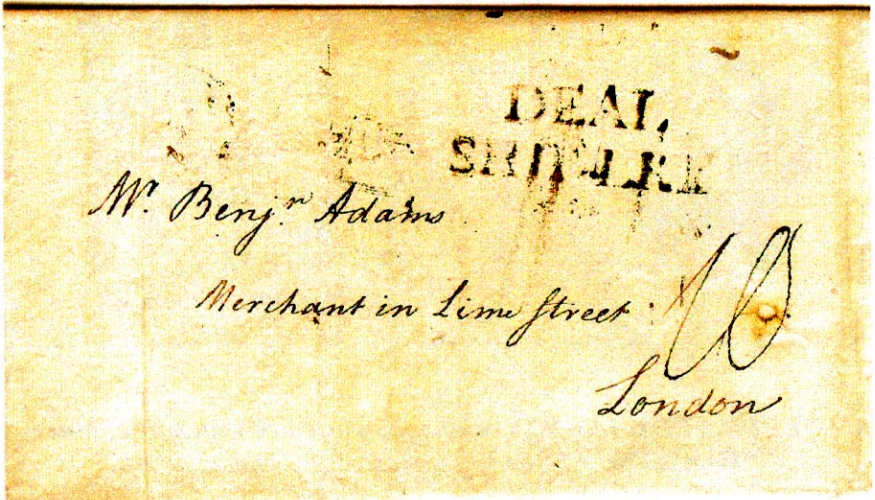 DEAL
Mr. Benjn Adams
Merchant in Lime Street
10
London